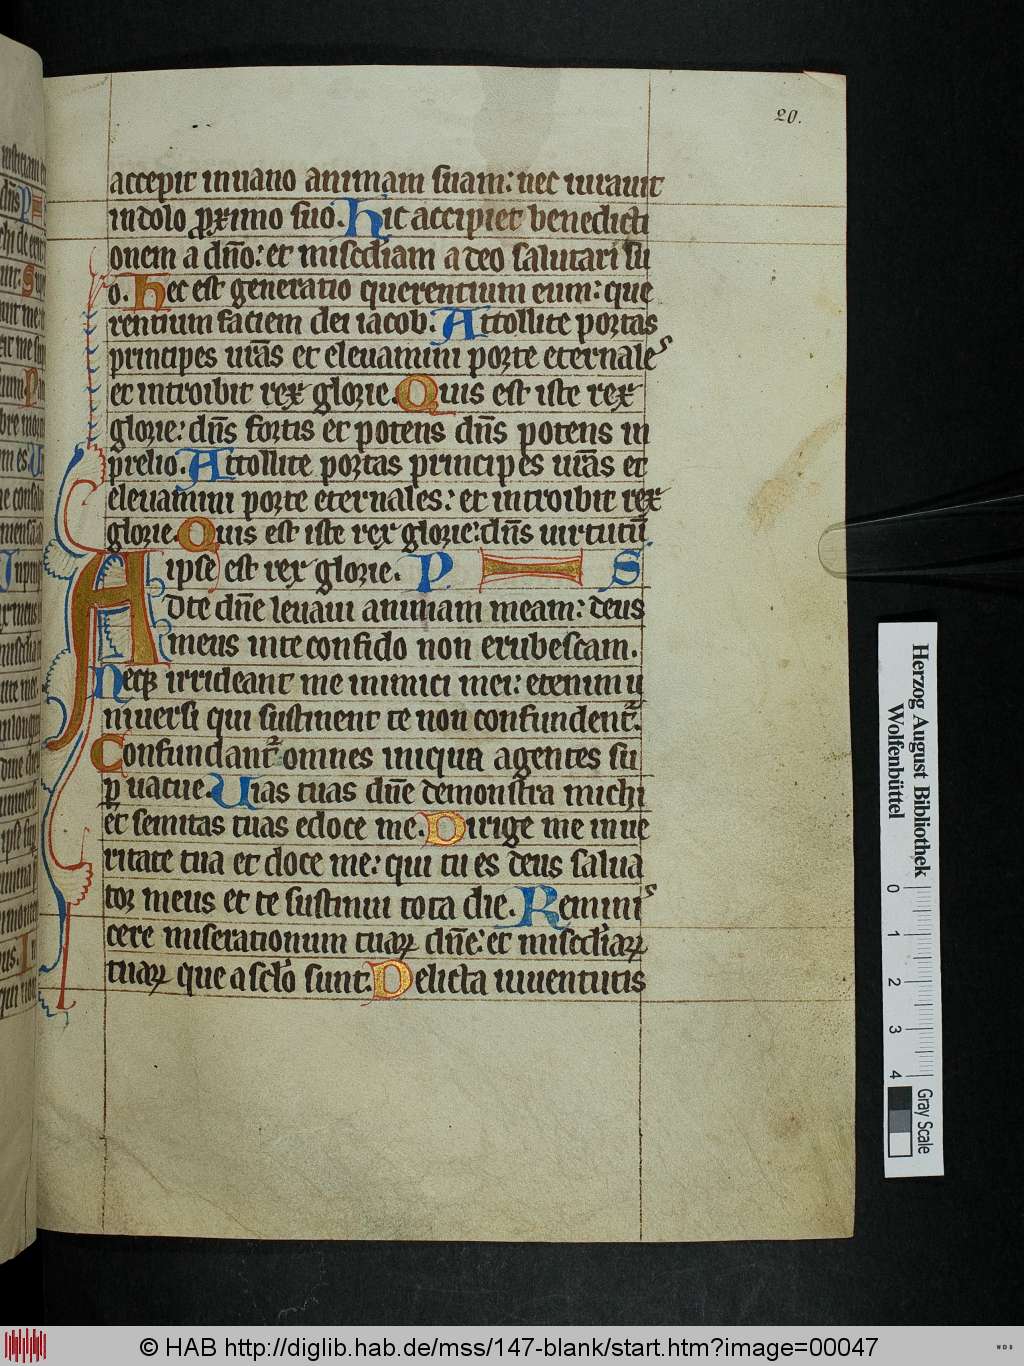 20.
accepit in uano animam suam: nec iurauit
in dolo proximo suo. Hic accipiet benedicti
onem a dn̄o: et miscd̓iam a deo salutari su
o. Hec est generatio querentium eum: que
rentium faciem dei iacob. Attollite portas
principes ur̄as et eleuamini porte eternales
et introibit rex glorie. Quis est iste rex
glorie: dn̄s fortis et potens dn̄s potens in
prelio. Attollite portas principes ur̄as et
eleuamini porte eternales: et introibit rex
glorie. Quis est iste rex glorie: dn̄s uirtutū
ipse est rex glorie. P S
Ad te dn̄e leuaui animam meam: deus
meus in te confido non erubescam.
Neqꝫ irrideant me inimici mei: etenim u
niuersi qui sustinent te non confundent᷑.
Confundant᷑ omnes iniqua agentes su
ꝑ uacue. Uias tuas dn̄e demonstra michi
et semitas tuas edoce me. Dirige me in ue
ritate tua et doce me: qui tu es deus salua
tor meus et te sustinui tota die. Reminis
cere miserationum tuaꝝ dn̄e: et miscd̓iaꝝ
tuaꝝ que a sclo̓ sunt. Delicta iuuentutis
Herzog August Bibliothek
Wolfenbüttel
0 1 2 3 4
Gray Scale
© HAB http://diglib.hab.de/mss/147-blank/start.htm?image=00047